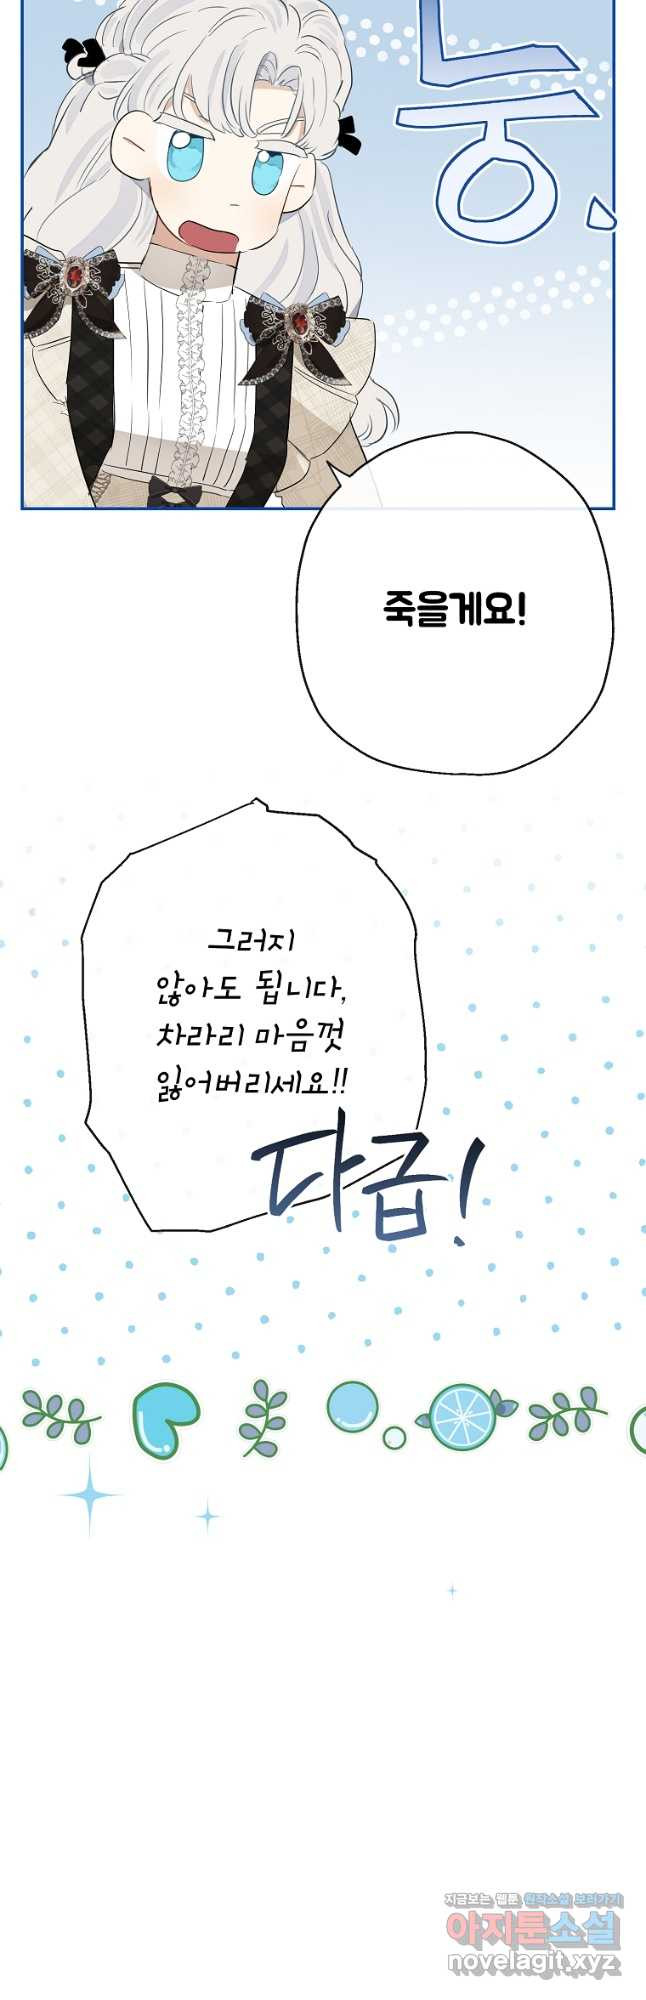 능.
죽을게요!
그러지
않아도 됩니다,
차라리 마음껏
잃어버리세요!!
다급!
지금보는 웹툰 원작소설 보러가기
아지툰소설
novelagit.xyz